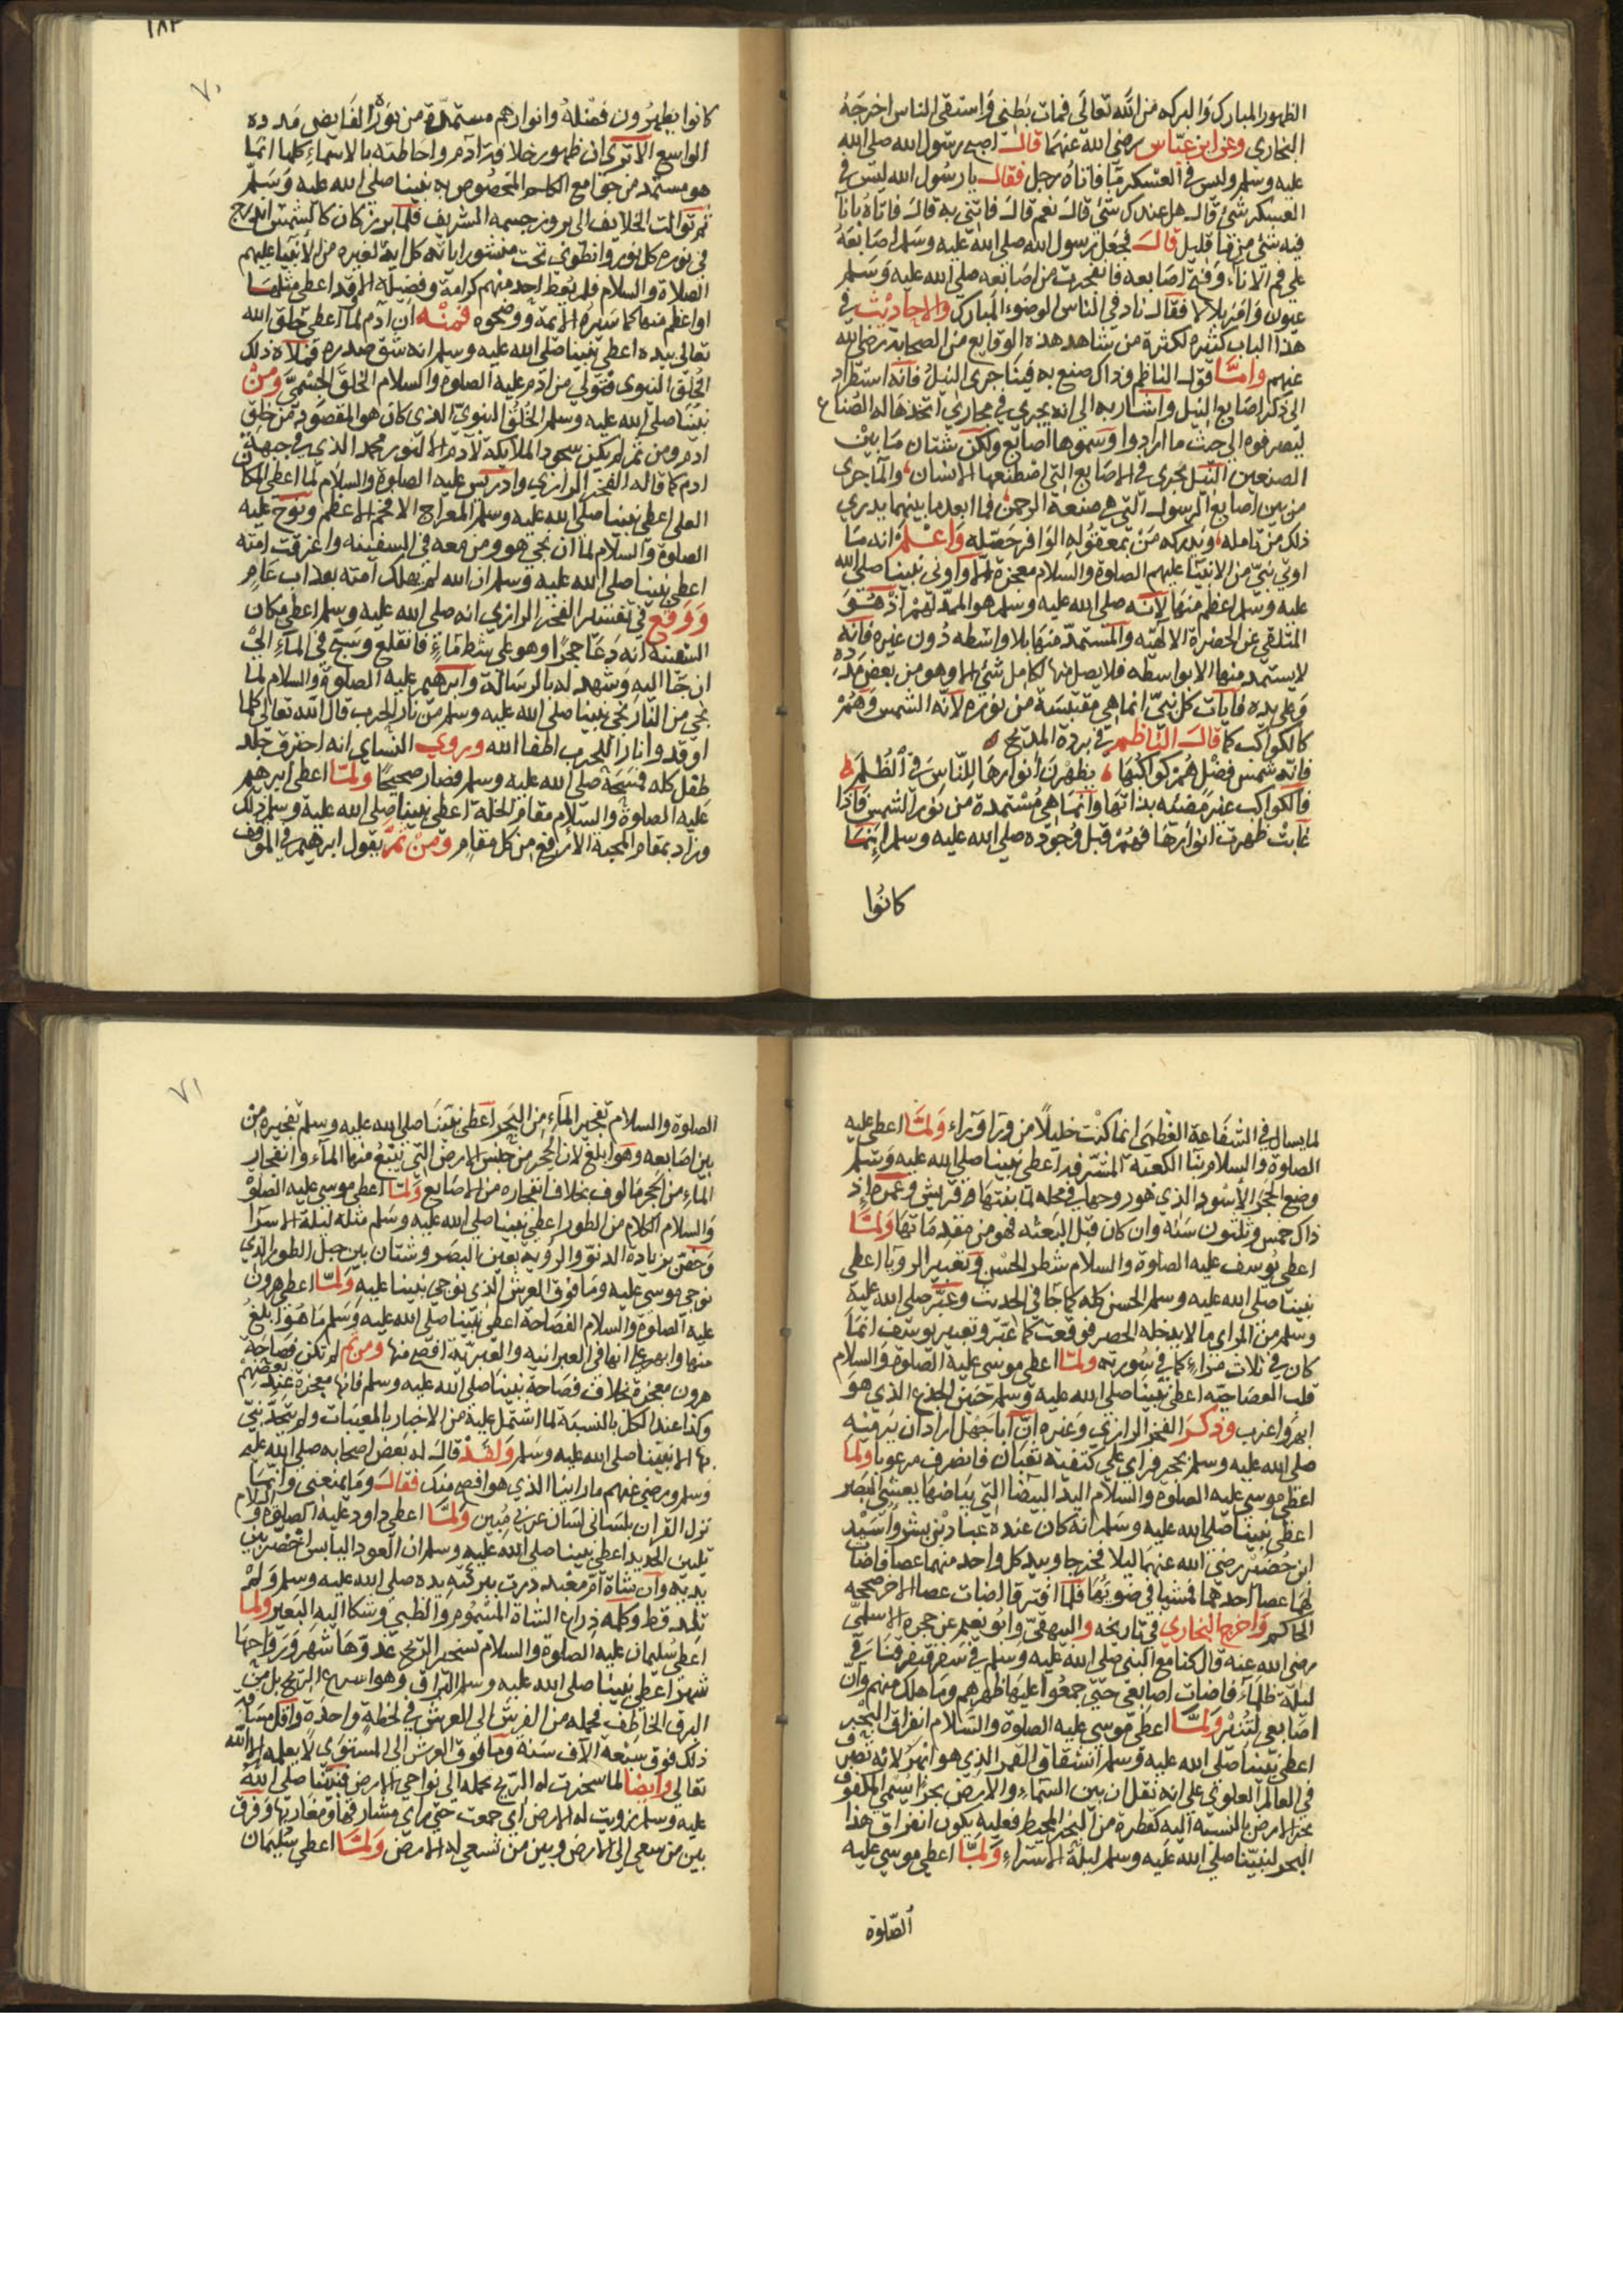 الظهور المبارك والبركه من الله تعالى فمات بطني واستقى الناس اخرجه
البخاري وعن ابن عباس رضي الله عنهما قال اصبح رسول الله صلى الله
عليه وسلم وليس في العسكر ما فاتاه رجل فقال يا رسول الله ليس في
العسكر شئ قال هل عندك شئ قال نعم قال فاتني به قال فاتاه باناء
فيه شئ من ما قليل قال فجعل رسول الله صلى الله عليه وسلم اصابعه
على فم الاناء وفتح اصابعه فانفجرت من اصابعه صلى الله عليه وسلم
عيون وامر بلالا فقال ناد في الناس الوضوء المبارك والاحاديث في
هذا الباب كثيره لكثرة من شاهد هذه الوقايع من الصحابة رضي الله
عنهم واما قول الناظم وذاك صنع به فينا جرى النيل فانه استطراد
الى ذكر اصابع النيل واشار به الى انه يجري في مجاري اتخذها له الصناع
ليصرفوه الى حيث ما ارادوا وسموها اصابع ولكن شتان ما بين
الصنعين النيل يجرى في الاصابع التي اصطنعها الانسان والما جرى
من بين اصابع الرسول التي هي صنعة الرحمن فما ابعد ما بينهما يدري
ذلك من تامله ويدركه من بمعقوله الوافر حصله واعلم انه ما
اوتي نبي من الانبيا عليهم الصلوة والسلام معجزة الا واوتي نبينا صلى الله
عليه وسلم اعظم منها لانه صلى الله عليه وسلم هو الممد لهم اذ هو
المتلقي عن الحضرة الالهيه والمستمد منها بلا واسطه دون غيره فانه
لا يستمد منها الا بواسطه فلا يصل منها لكامل شئ الا وهو من بعض مدده
وعلى يده فايات كل نبي انما هي مقتبسة من نوره لانه الشمس وهم
كالكواكب كما قال الناظم في بردة المديح
فانه شمس فضل هم كواكبها يظهرن انوارها للناس في الظلم
فالكواكب غير مضيئه بذاتها وانما هي مستمدة من نور الشمس فاذا
غابت ظهرت انوارها فهم قبل وجوده صلى الله عليه وسلم انما
كانوا
١٨٣
٧٠
كانوا يظهرون فضله وانوارهم مستمدة من نوره الفايض ومدده
الواسع الا ترى ان ظهور خلافة ادم واحاطته بالاسماء كلها انما
هو مستمد من جوامع الكلم المخصوص به نبينا صلى الله عليه وسلم
ثم توالت الخلايف الى بروز جسمه الشريف فلما برز كان كالشمس اندرج
في نوره كل نور وانطوى تحت منشور اياته كل اية لغيره من الانبيا عليهم
الصلاة والسلام فلم يعط احد منهم كرامة وفضيلة الا وقد اعطى مثلها
او اعظم منها كما سبره الايمة ووضحوه فمنه ان ادم لما اعطي خلق الله
تعالى بيده اعطي نبينا صلى الله عليه وسلم انه شق صدره فملاه ذلك
الخلق النبوى فتولى من ادم عليه الصلوة والسلام الخلق الجسمي ومن
نبينا صلى الله عليه وسلم الخلق النبوي الذي كان هو المقصود من خلق
ادم ومن ثم لم يكن سجود الملايكة لادم الا لنور محمد الذي في جبهة
ادم كما قاله الفخر الرازي وادريس عليه الصلوة والسلام لما اعطي المكان
العلى اعطي نبينا صلى الله عليه وسلم المعراج الافخم الاعظم ونوح عليه
الصلوة والسلام لما ان نجى هو ومن معه في السفينه واغرقت امته
اعطي نبينا صلى الله عليه وسلم ان الله لم يهلك امته بعذاب عام
ووقع في تفسير الفخر الرازي انه صلى الله عليه وسلم اعطي مكان
السفينه انه دعا حجرا وهو على شط ماء فانقلع وسبح في الماء الى
ان جا اليه وشهد له بالرسالة وابرهيم عليه الصلوة والسلام لما
نجي من النار نجي نبينا صلى الله عليه وسلم من نار الحرب قال الله تعالى كلما
اوقدوا نارا للحرب اطفاها الله وروى النساى انه احترق جلد
طفل كله فمسحه صلى الله عليه وسلم فصار صحيحا ولما اعطي ابرهيم
عليه الصلوة والسلام مقام الخلة اعطي نبينا صلى الله عليه وسلم ذلك
وزاد بمقام المحبة الارفع من كل مقام ومن ثم يقول ابرهيم في الموقف
لما يسال في الشفاعة العظمى انما كنت خليلا من ورا وراء ولما اعطي عليه
الصلوة والسلام بنا الكعبة المشرفه اعطي نبينا صلى الله عليه وسلم
وضع الحجر الاسود الذي هو روحها في محله لما بنتها قريش وعمره اذ
ذاك خمس وثلثون سنه وان كان قبل البعثه فهو من مقدماتها ولما
اعطي يوسف عليه الصلوة والسلام شطر الحسن وتعبير الرويا اعطي
نبينا صلى الله عليه وسلم الحسن كله كما جا في الحديث وعبر صلى الله عليه
وسلم من المراى ما لا يدخله الحصر فوقعت كما عبر وتعبير يوسف انما
كان في ثلاث مراء كما في سورته ولما اعطي موسى عليه الصلوة والسلام
قلب العصا حيه اعطي نبينا صلى الله عليه وسلم حنين الجذع الذي هو
ابهر واغرب وذكر الفخر الرازي وغيره ان ابا جهل اراد ان يرميه
صلى الله عليه وسلم بحجر فراى على كتفيه ثعبان فانصرف مرعوبا ولما
اعطي موسى عليه الصلوه والسلام اليد البيضا التي بياضها يعشى البصر
اعطي نبينا صلى الله عليه وسلم انه كان عنده عباد بن بشر واسيد
ابن حضير رضي الله عنهما ليلا فخرجا وبيد كل واحد منهما عصا فاضات
لهما عصا احدهما فمشيا في ضوئها فلما افترقا اضات عصا الاخر صححه
الحاكم واخرج البخاري في تاريخه والبيهقي وابو نعيم عن حمزه الاسلمي
رضي الله عنه قال كنا مع النبي صلى الله عليه وسلم في سفر فتفرقنا في
ليلة ظلماء فاضات اصابعي حتى جمعوا عليها ظهرهم وما هلك منهم وان
اصابعي لتنير ولما اعطي موسى عليه الصلوة والسلام انفراق البحر
اعطي نبينا صلى الله عليه وسلم انشقاق القمر الذي هو ابهر لانه تصرف
في العالم العلوي على انه نقل ان بين السماء والارض بحرا اسمي المكفوف
بحر الارض بالنسبة اليه كقطرة من البحر المحيط فعليه يكون انفراق هذا
البحر لنبينا صلى الله عليه وسلم ليلة الاسراء ولما اعطي موسى عليه
الصلوة
٧١
الصلوة والسلام تفجير الماء من الحجر اعطي نبينا صلى الله عليه وسلم تفجيره من
بين اصابعه وهو ابلغ لان الحجر من جنس الارض التي ينبع منها الماء وانفجار
الماء من الحجر مالوف بخلاف انفجاره من الاصابع ولما اعطي موسى عليه الصلوة
والسلام الكلام من الطور اعطي نبينا صلى الله عليه وسلم مثله ليلة الاسرا
وخص بزيادة الدنو والروية بعين البصر وشتان بين جبل الطور الذي
نوجي موسى عليه وما فوق العرش الذي نوجي نبينا عليه ولما اعطي هرون
عليه الصلوة والسلام الفصاحة اعطي نبينا صلى الله عليه وسلم ما هو ابلغ
منها وابهر على انها في العبرانيه والعربية افصح منها ومن ثم لم تكن فصاحة
هرون معجزة بخلاف فصاحة نبينا صلى الله عليه وسلم فانها معجزة عند بعضهم
وكذا عند الكل بالنسبة لما اشتمل عليه من الاخبار بالمغيبات ولم يتحد نبي
بها الا نبينا صلى الله عليه وسلم ولقد قال له بعض اصحابه صلى الله عليه
وسلم ورضي عنهم ما راينا الذي هو افصح منك فقال وما يمنعني وانما
نزل القران بلساني لسان عربي مبين ولما اعطي داود عليه الصلوة والسلام
تليين الحديد اعطي نبينا صلى الله عليه وسلم ان العود اليابس اخضر بين
يديه وان شاة ام معبد درت ببركة يده صلى الله عليه وسلم ولم
تلد قط وكلمه ذراع الشاة المسموم والظبي وشكا اليه البعير ولما
اعطي سليمان عليه الصلوة والسلام تسخير الريح غدوها شهر ورواحها
شهر اعطي نبينا صلى الله عليه وسلم البراق وهو اسرع من الريح بل من
البرق الخاطف فحمله من الفرش الى العرش في لحظة واحدة واقل مسافة
ذلك فوق سبعة الاف سنة وما فوق العرش الى المستوى لا يعلمه الا الله
تعالى وايضا لما سخرت له الريح تحمله الى نواحي الارض فنبينا صلى الله
عليه وسلم زويت له الارض اي جمعت حتى راى مشارقها ومغاربها وفرق
بين من سعى الى الارض وبين من تسعى له الارض ولما اعطي سليمان